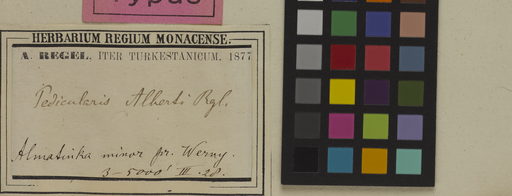 Typus
HERBARIUM REGIUM MONACENSE.
A. REGEL, ITER TURKESTANICUM, 1877
Pedicularis Alberti Rgl.
Almatinka minor pr. Werny.
3-5000' III. 28.